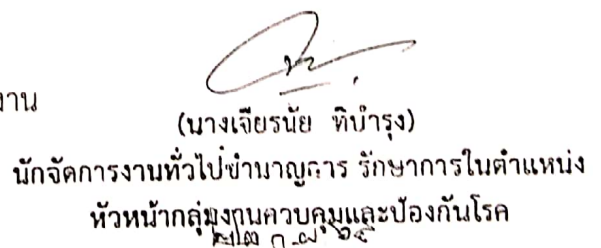 งาน
(นางเจียรนัย ทิบำรุง)
นักจัดการงานทั่วไปชำนาญการ รักษาการในตำแหน่ง
หัวหน้ากลุ่มงานควบคุมและป้องกันโรค